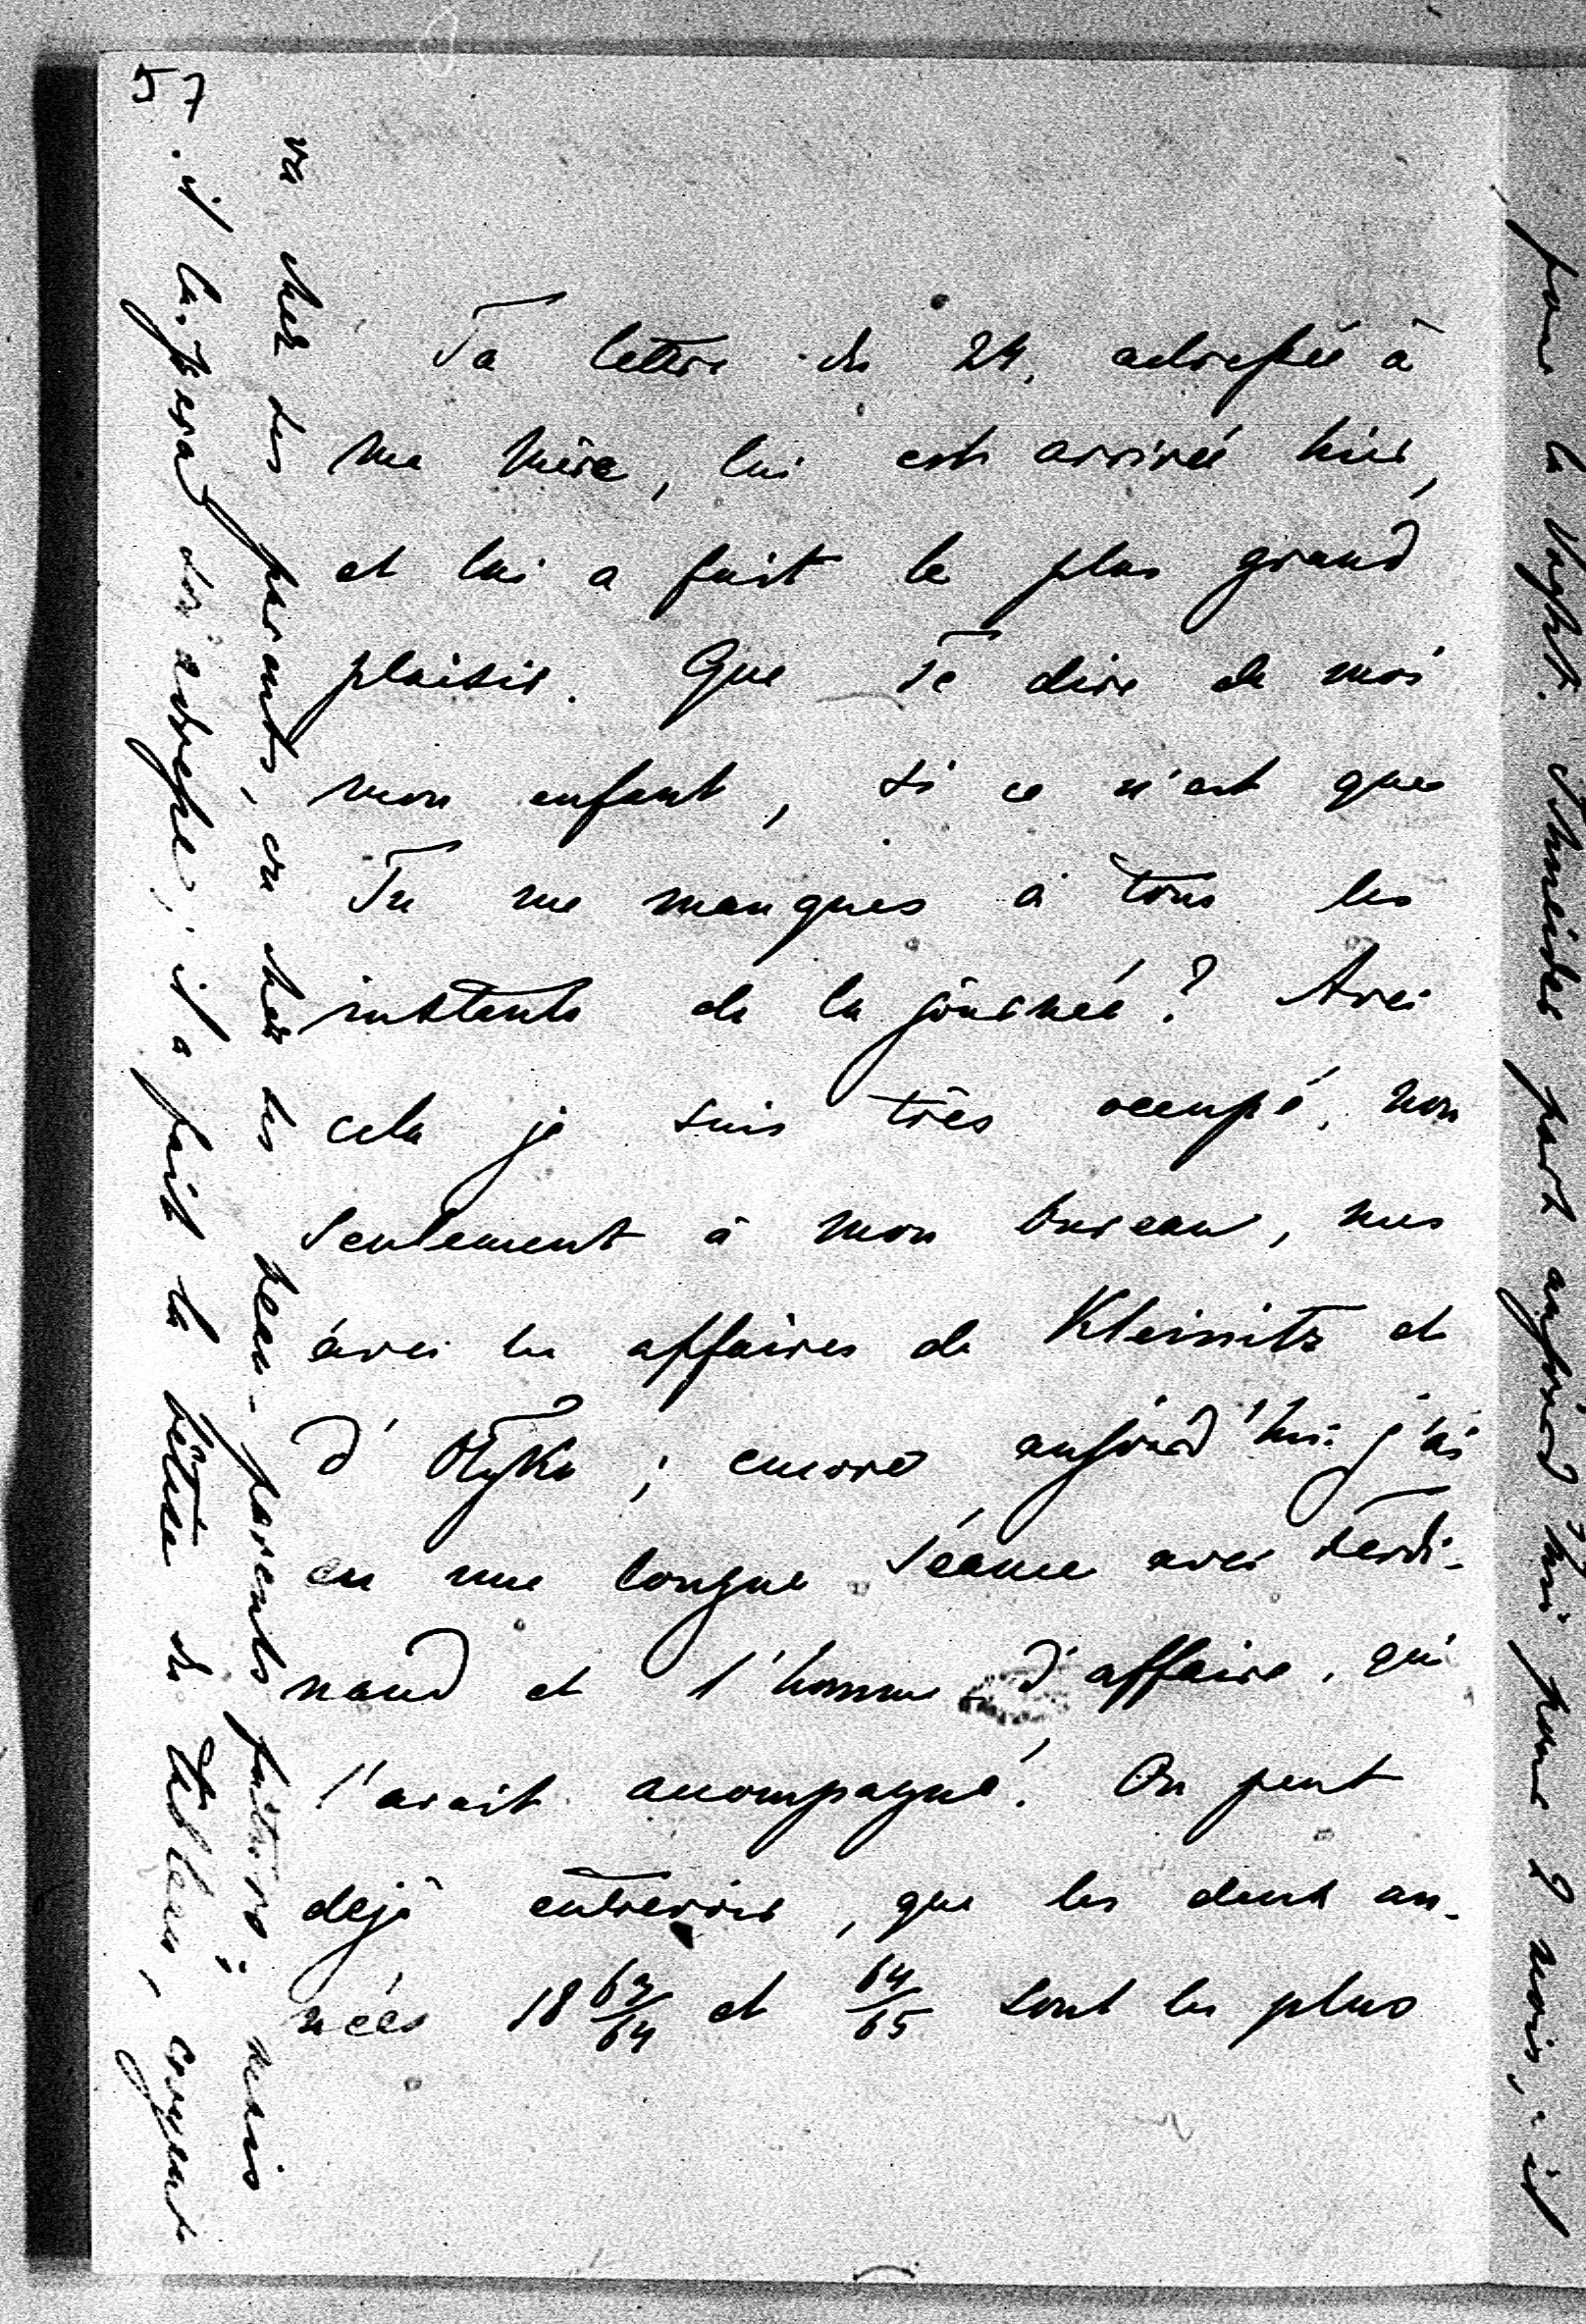 57
Ta lettre du 24. adressée à
ma mère, lui est arrivée hier,
et lui a fait le plus grand
plaisir. Que Te dire de moi
mon enfant, si ce n'est que
Tu me manques à tous les
instants de la journée? Avec
cela je suis très occupé, non
seulement à mon bureau, mes
avec les affaires de Kleinitz et
d'Olyka; encore aujourd'hui j'ai
eu une longue séance avec Ferdi-
nand et l'homme d'affaire, qui
l'avait accompagné. On peut
déjà entrevoir, que les deux an-
nées 18 63/64 et 64/65 sont les plus
pour la Vught. Schneider part aujourd'hui pour 2 mois, il
va chez des parents, ou chez des beau-parents futurs; mais
il la perdra son adresse; il a fait la bêtise de tableau, croyant